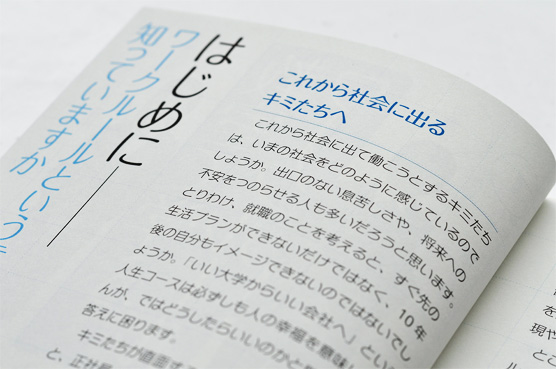 はじめに
ワークルールという
知っていますか
これから社会に出る
キミたちへ
これから社会に出て働こうとするキミたち
は、いまの社会をどのように感じているので
しょうか。出口のない息苦しさや、将来への
不安をつのらせる人も多いだろうと思います。
とりわけ、就職のことを考えると、すぐ先の
生活プランができないだけではなく、10年
後の自分もイメージできないのではないでし
ょうか。「いい大学からいい会社へ」とい
人生コースは必ずしも人の幸福を意味し
んが、ではどうしたらいいのかと
答えに困ります。
キミたちが直面する
と、正社員
を
現や
とこ